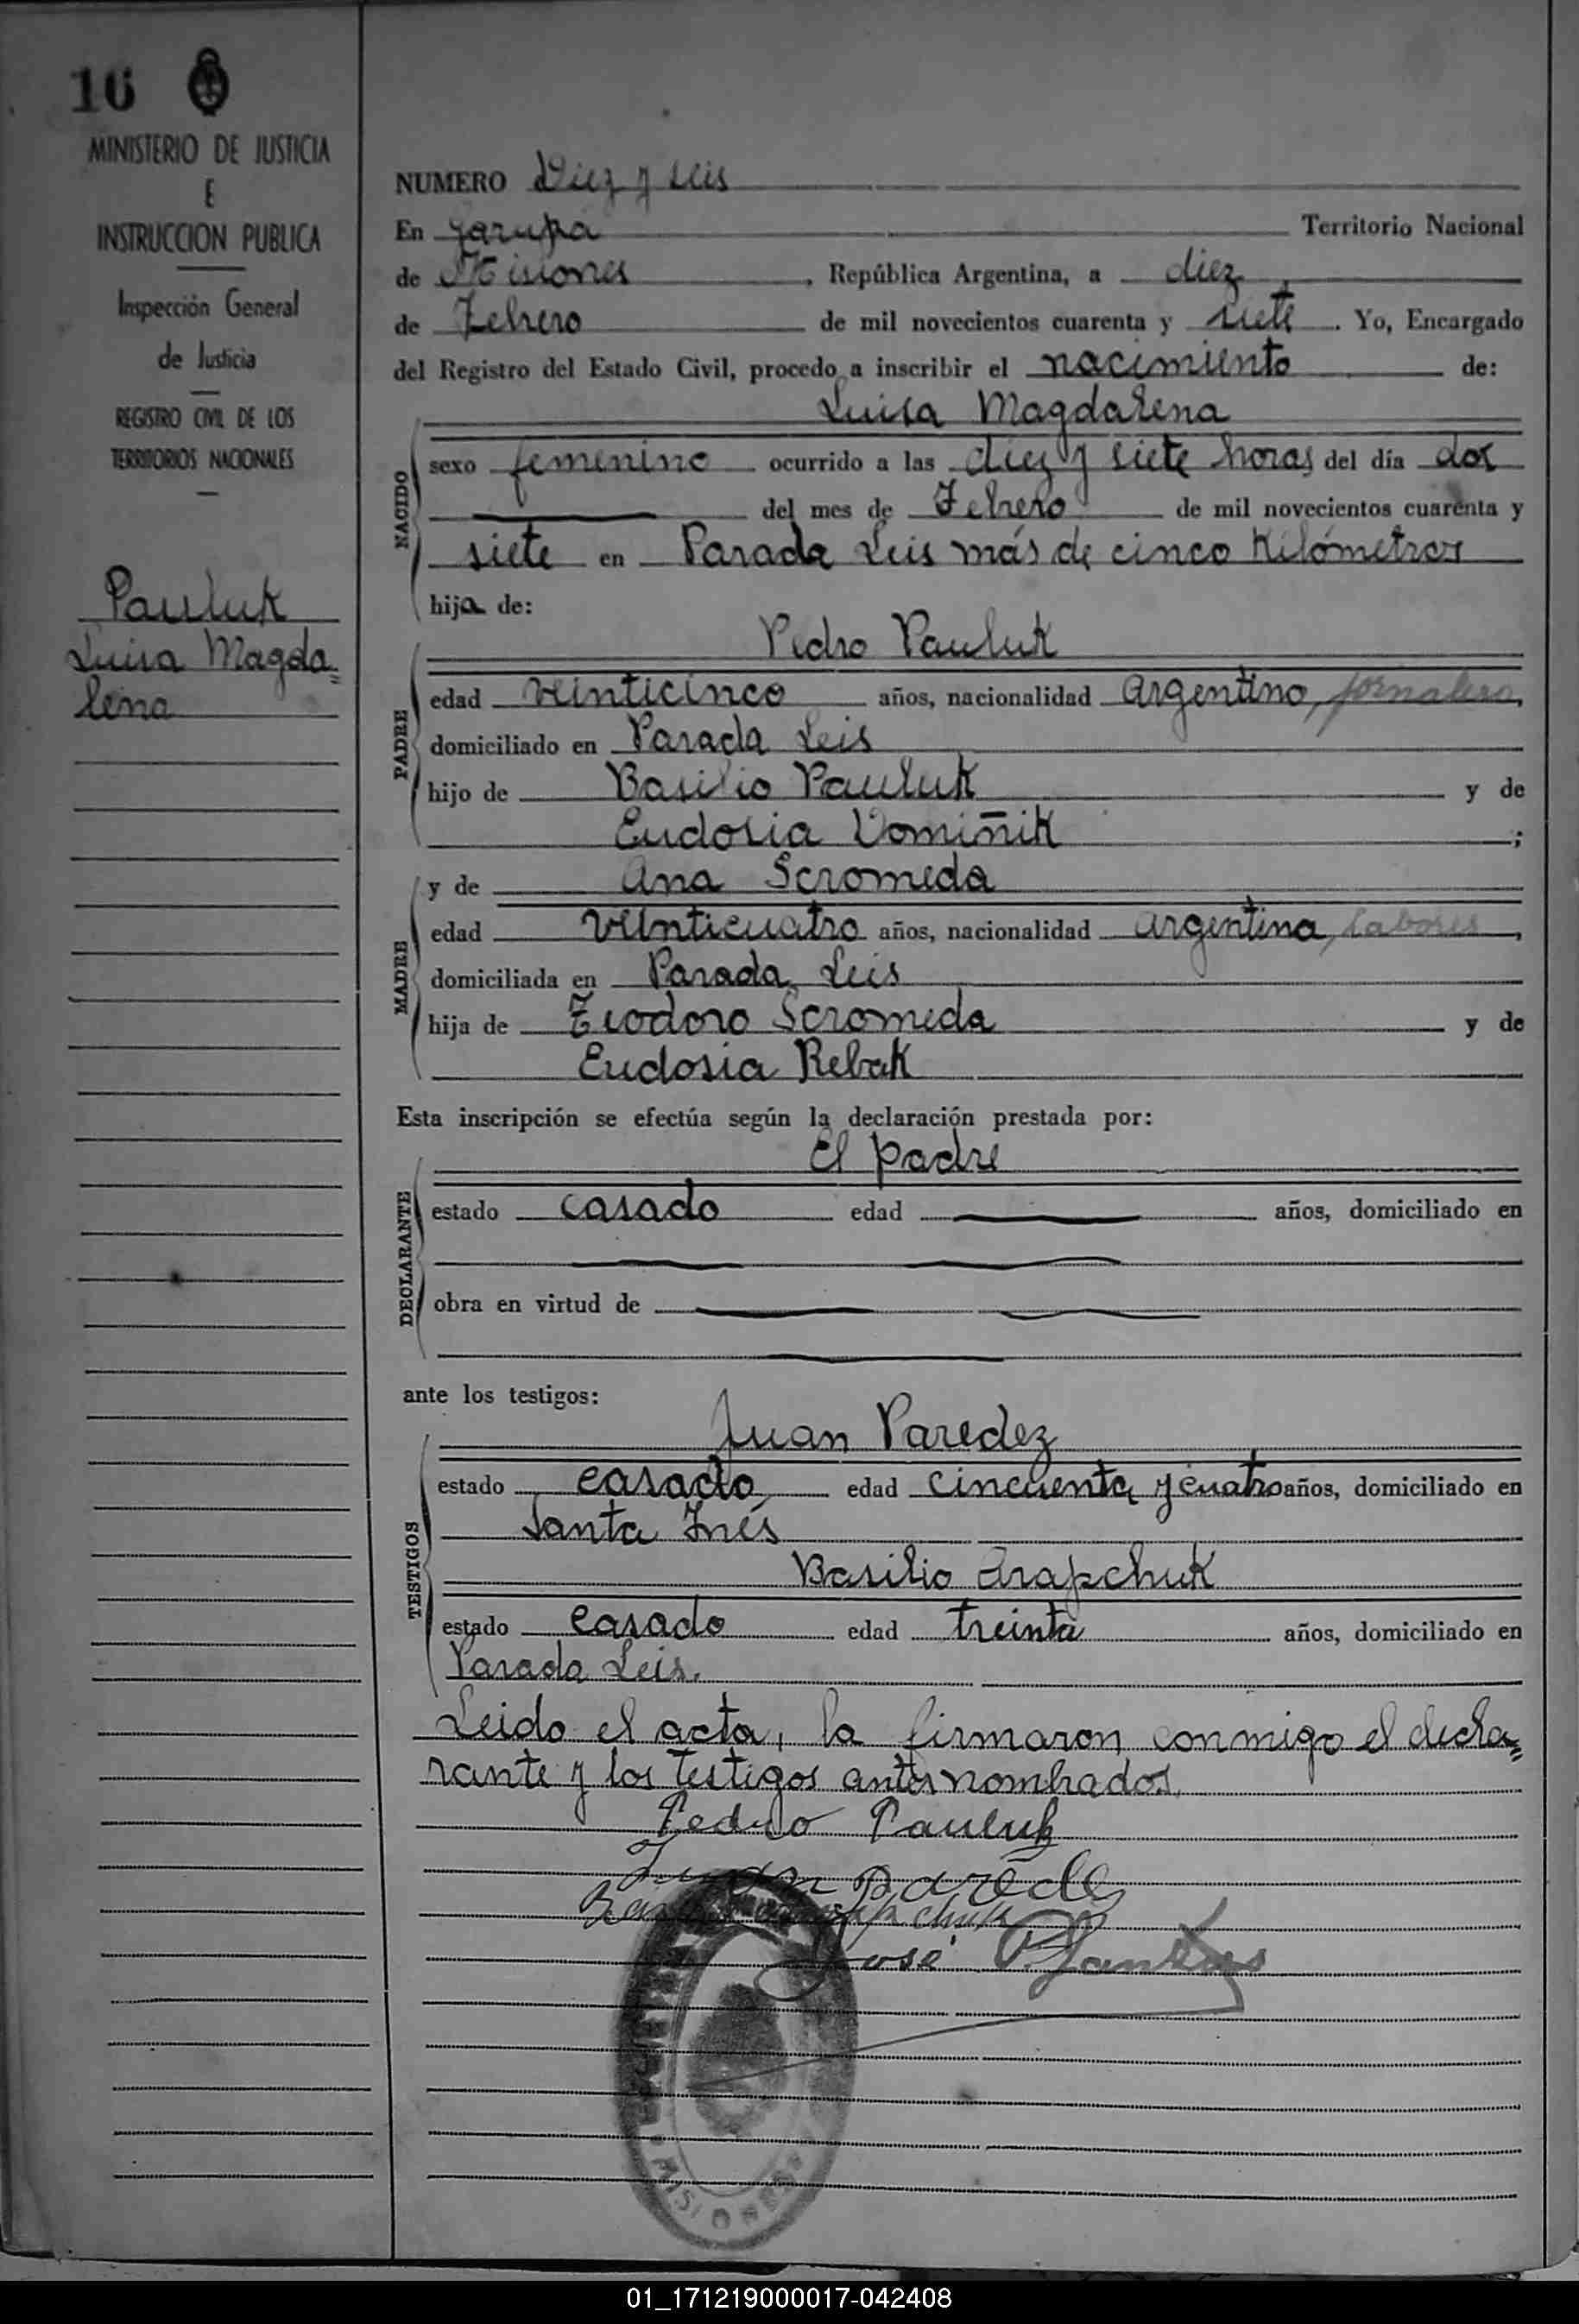 16
MINISTERIO DE JUSTICIA
E
INSTRUCCION PUBLICA
Inspección General
de Justicia
REGISTRO CIVIL DE LOS
TERRITORIOS NACIONALES
Pauluk
Luisa Magda=
lena
NUMERO Diez y seis
En Garupa Territorio Nacional
de Misiones, República Argentina, a diez
de Febrero de mil novecientos cuarenta y siete. Yo, Encargado
del Registro del Estado Civil, procedo a inscribir el nacimiento de:
Luisa Magdalena
NACIDO
sexo femenino ocurrido a las diez y siete horas del día dos
del mes de Febrero de mil novecientos cuarenta y
siete en Parada Leis más de cinco Kilómetros
hija de:
Pedro Pauluk
PADRE
edad veinticinco años, nacionalidad argentino, jornalero,
domiciliado en Parada Leis
hijo de Basilio Pauluk y de
Eudosia Domiñik;
y de Ana Scromeda
MADRE
edad veinticuatro años, nacionalidad argentina, labores,
domiciliada en Parada Leis
hija de Teodoro Scromeda y de
Eudosia Rebak
Esta inscripción se efectúa según la declaración prestada por:
El padre
DECLARANTE
estado casado edad años, domiciliado en
obra en virtud de
ante los testigos:
Juan Paredez
TESTIGOS
estado casado edad cincuenta y cuatro años, domiciliado en
Santa Inés
Basilio Arapchuk
estado casado edad treinta años, domiciliado en
Parada Leis.
Leido el acta, la firmaron conmigo el decla=
rante y los testigos antes nombrados.
Pedro Pauluk
Juan Parede
José
MISIONES
01_171219000017-042408